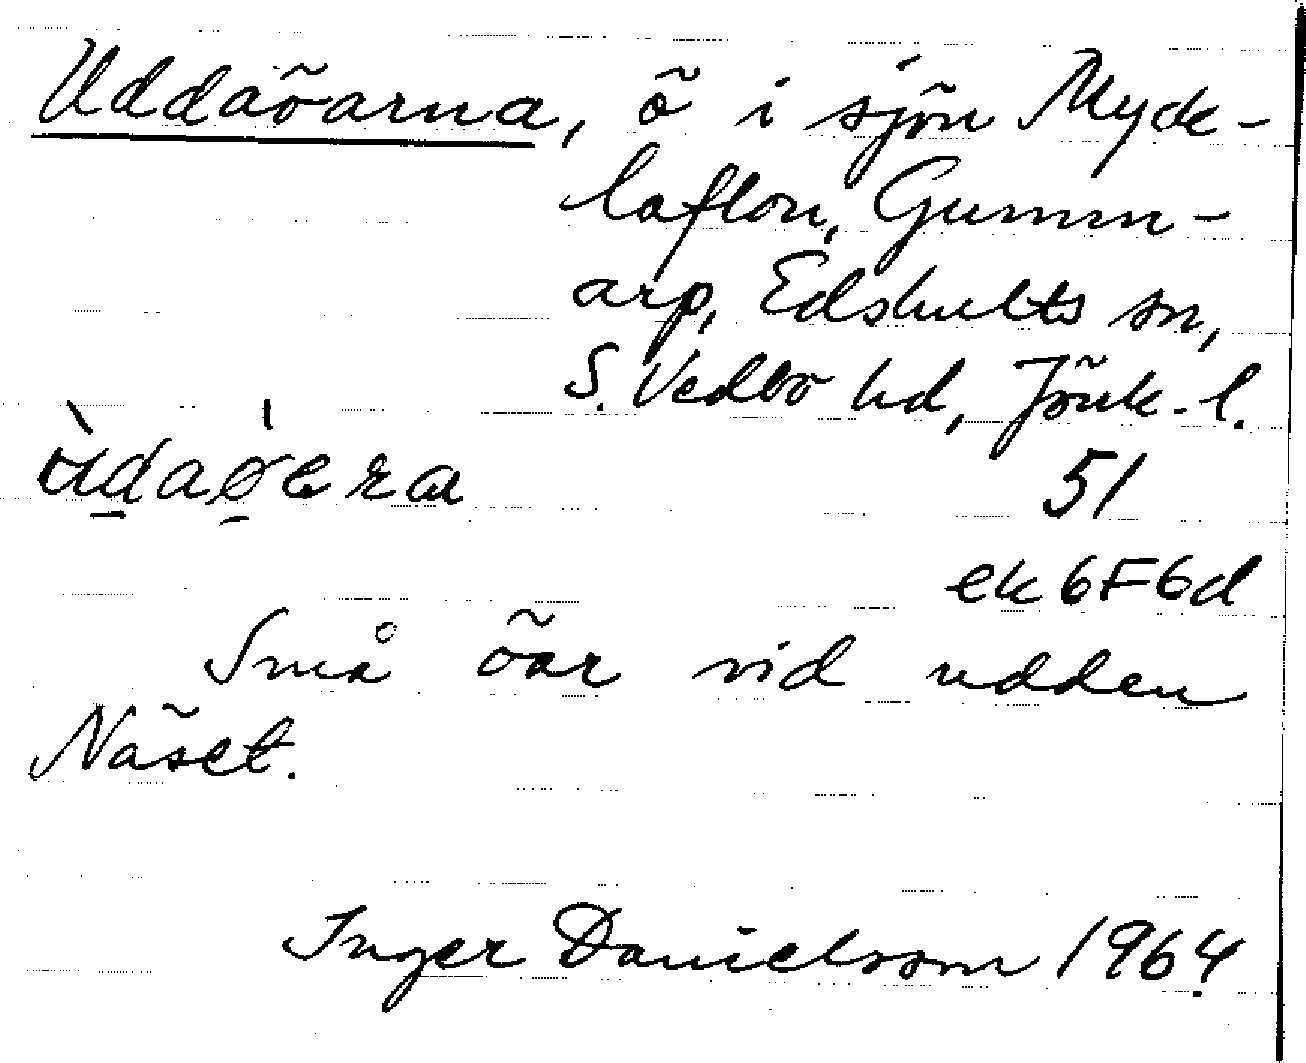 Uddaöarna, ö i sjön Myck-
laflon, Gumm-
arp, Edshults sn,
S. Vedbo hd, Jönk. l.
ùdaø̱era 51
ek 6F6d
Små öar vid udden
Näset.
Inger Danielsson 1964